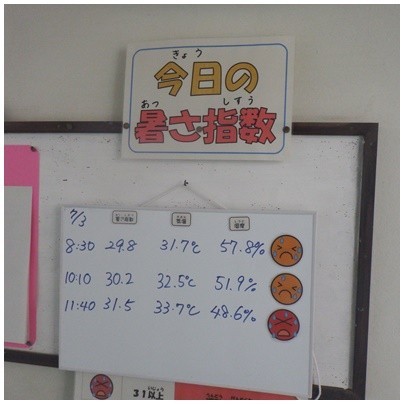 きょう
今日の
あつ しすう
暑さ指数
7/3 暑さ指数 気温 湿度
8:30 29.8 31.7℃ 57.8%
10:10 30.2 32.5℃ 51.9%
11:40 31.5 33.7℃ 48.6%
いじょう
31以上